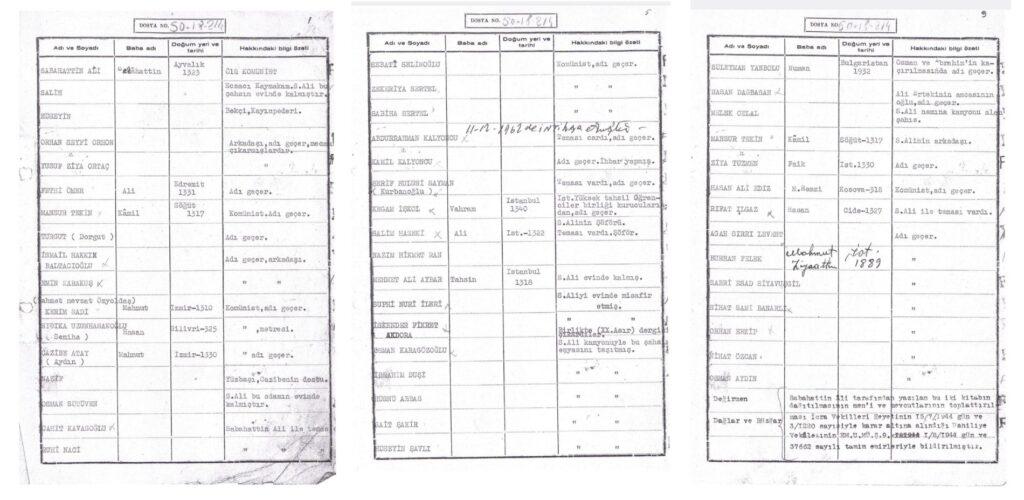 1
DOSYA NO. 50-18-214
Adı ve Soyadı Baba adı Doğum yeri ve tarihi Hakkındaki bilgi özeti
SABAHATTİN ALİ Ayvalık 1323 KOMÜNİST
SALİH Kaymakam.S.Ali bu çahsın evinde kalmıştır.
HÜSEYİN Bekçi,Kayınpederi.
ORHAN SEYFİ ORHON Arkadaşı,adı geçer,
YUSUF ZİYA ORTAÇ "
FETHİ ÖMER Ali Edremit 1331 Adı geçer.
MANSUR TEKİN Kâmil Söğüt 1317 Komünist.Adı geçer.
TURGUT ( Dorgut ) Adı geçer.
İSMAİL HAKKIN BALTACIOĞLU Adı geçer,arkadaşı.
EMİN KARAKUŞ " "
KERİM SADİ Mahmut İzmir-1310 Komünist,adı geçer.
( Seniha ) Hasan Silivri-325 " ,metresi.
CAZİBE ATAY ( Aydın ) Mahmut İzmir-1330 " adı geçer.
NAZİF Yüzbaşı,Cazibenin dostu.
OSMAN SÜTÜVEN S.Ali bu adamın evinde kalmıştır.
CAHİT KAVASOĞLU Sabahattin Ali ile
RUHİ NACİ " "
5
DOSYA NO. 50-18-214
Adı ve Soyadı Baba adı Doğum yeri ve tarihi Hakkındaki bilgi özeti
SEBATİ SELİMOĞLU Komünist,adı geçer.
ZEKERİYA SERTEL " "
SABİHA SERTEL " "
11-12-1962 de
ABDURRAHMAN KALYONCU Teması vardı,adı geçer.
KAMİL KALYONCU Adı geçer.İhbar yapmış.
ŞERİF HULUSİ SAYMAN ( Kurbanoğlu ) Teması vardı,adı geçer.
ERGAM İŞKOL Vahram İstanbul 1340 İst.Yüksek tahsil Öğrenciler birliği kurucularından,adı geçer.
SALİM HASEKİ Ali İst.-1322 S.Alinin Şöförü. Teması vardı.Şöför.
NAZIM HİKMET RAN " "
MEHMET ALİ AYBAR Tahsin İstanbul 1318 S.Ali evinde kalmış.
SUPHİ NURİ İLERİ S.Aliyi evinde misafir etmiş.
İSKENDER FİKRET AKDORA Birlikte (XX.Asır) dergi çıkardılar.
OSMAN KARAGÖZOĞLU S.Ali kamyonuyla bu çahsın eşyasını taşıtmış.
İBRAHİM DUŞİ " "
HÜSNÜ ABBAS " "
SAİT ŞAKİR " "
HÜSEYİN ŞAYLI " "
9
DOSYA NO. 50-18-214
Adı ve Soyadı Baba adı Doğum yeri ve tarihi Hakkındaki bilgi özeti
SÜLEYMAN YANBOLU Numan Bulgaristan 1932 Osman ve İbrahim'in kaçırılmasında adı geçer.
HASAN DAĞBAŞAN Ali Ertekinin amcasının oğlu,adı geçer.
MELEK CELAL S.Ali namına kamyonu alan çahıs.
MANSUR TEKİN Kâmil Söğüt-1317 S.Alinin arkadaşı.
ZİYA TÜZMEN Faik İst.1330 Adı geçer.
HASAN ALİ EDİZ Kosova-318 Komünist,adı geçer.
RIFAT ILGAZ Hasan Cide-1327 S.Ali ile teması vardı.
AGAH SIRRI LEVENT Adı geçer.
BURHAN FELEK Mahmut Ziyaettin İst 1889 "
SABRİ ESAD SİYAVUŞGİL "
NİHAT SAMİ BANARLI "
ORHAN SEFİP "
NİHAT ÖZCAN "
OSMAN AYDIN "
Değirmen Dağlar ve Rüzgar Sabahattin Ali tarafından yazılan bu iki kitabın
dağıtılmasının men'i ve mevcutlarının toplattırıl
ması İcra Vekilleri Heyetinin 15/7/1944 gün ve
3/1220 sayısiyle karar altına alındığı Dahiliye
Vekâletinin EM.U.MÜ.Ş.9. 1/8/1944 gün ve
37662 sayılı tamim emirleriyle bildirilmiştir.